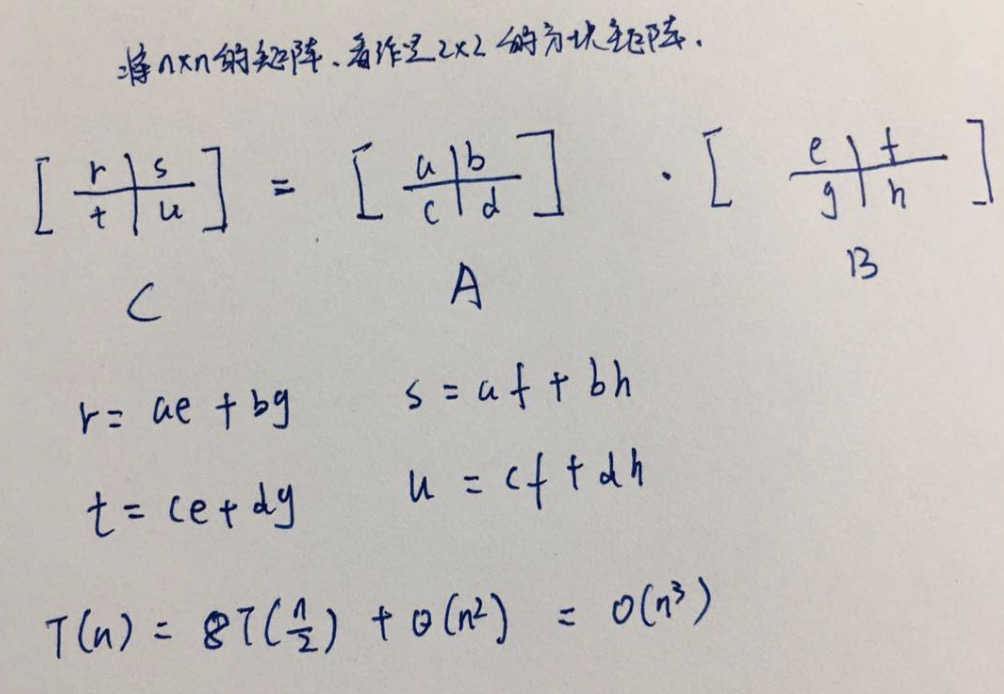 将n×n的矩阵、看作是2×2的方块矩阵.
[ r | s ] = [ a | b ] · [ e | f ]
[ t | u ] [ c | d ] [ g | h ]
C A B
r = ae + bg s = af + bh
t = ce + dg u = cf + dh
T(n) = 8T(n/2) + Θ(n²) = O(n³)